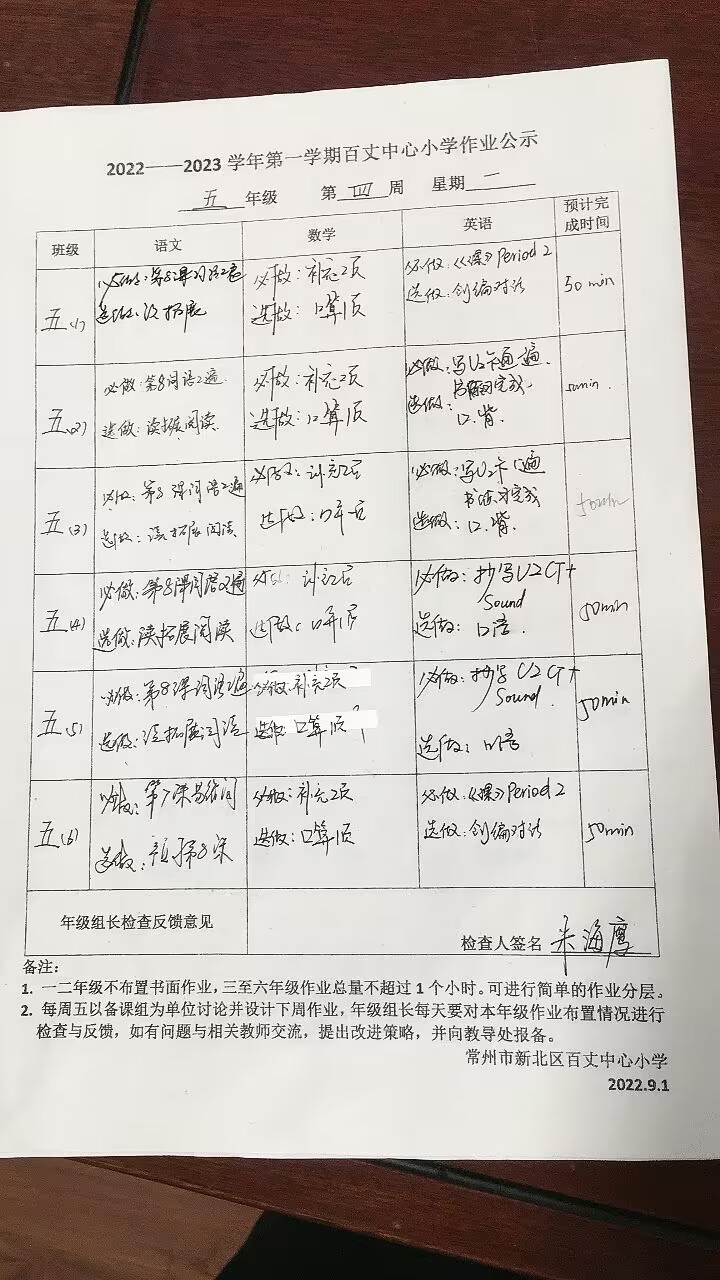 2022——2023 学年第一学期百丈中心小学作业公示
五 年级 第 四 周 星期 二
班级 语文 数学 英语 预计完成时间
五(1)
必做：第8课词语2遍
选做：读拓展
必做：补充2页
选做：口算1页
必做：《课》Period 2
选做：创编对话
50 min
五(2)
必做：第8词语2遍
选做：读拓展阅读
必做：补充2页
选做：口算1页
必做：写U2卡通 遍
选做：
口.背.
50min
五(3)
必做：第8课词语2遍
选做：读拓展阅读
必做：补充2页
选做：口算一页
必做：写U2卡 遍
选做：口.背.
50min
五(4)
必做：第8课词语2遍
选做：读拓展阅读
必做：补充2页
选做：口算1页
必做：抄写U2 CT+
Sound
选做：口语.
50min
五(5)
必做：第8课词语2遍
选做：读拓展阅读
必做：补充2页
选做：口算1页
必做：抄写U2 CT+
Sound.
选做：口语
50min
五(6)
必做：第7课
选做：预习第8课
必做：补充2页
选做：口算1页
必做：《课》Period 2
选做：创编对话
50min
年级组长检查反馈意见
检查人签名
备注：
1. 一二年级不布置书面作业，三至六年级作业总量不超过 1 个小时。可进行简单的作业分层。
2. 每周五以备课组为单位讨论并设计下周作业，年级组长每天要对本年级作业布置情况进行
检查与反馈，如有问题与相关教师交流，提出改进策略，并向教导处报备。
常州市新北区百丈中心小学
2022.9.1